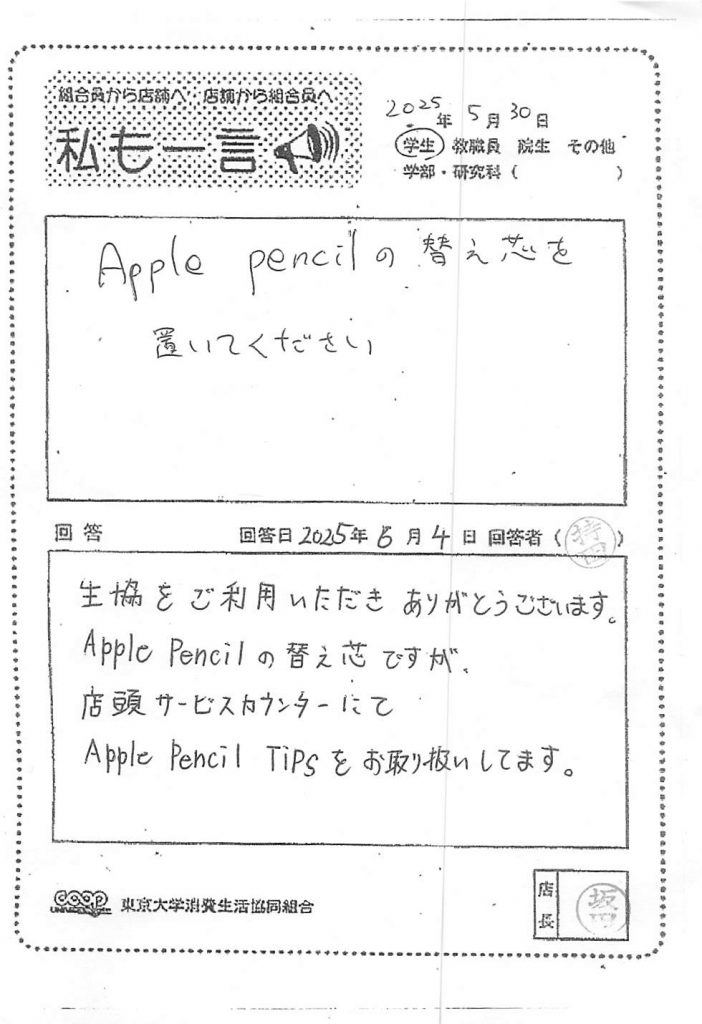 組合員から店舗へ 店舗から組合員へ
私も一言
2025年5月30日
学生 教職員 院生 その他
学部・研究科（ ）
Apple pencilの替え芯を
置いてください
回答 回答日2025年6月4日 回答者（ ）
生協をご利用いただきありがとうございます。
Apple Pencilの替え芯ですが、
店頭サービスカウンターにて
Apple Pencil TiPsをお取り扱いしてます。
coop 東京大学消費生活協同組合
店長